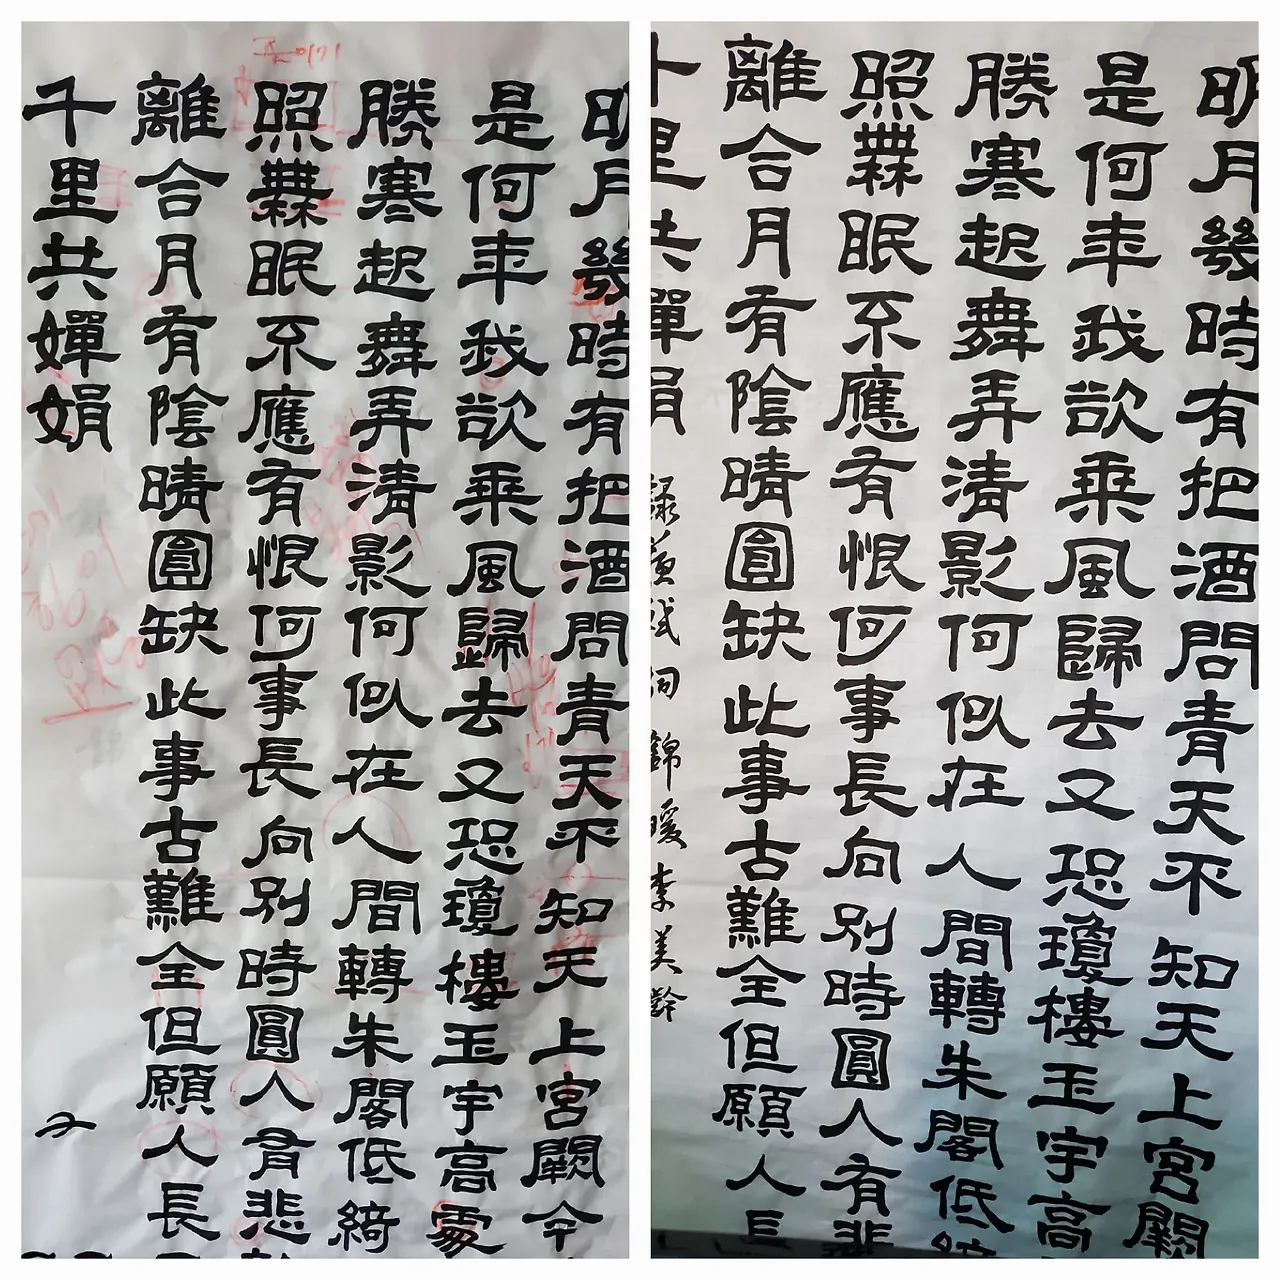 明月幾時有把酒問青天不知天上宮闕今
是何年我欲乘風歸去又恐瓊樓玉宇高處
勝寒起舞弄清影何似在人間轉朱閣低綺
照無眠不應有恨何事長向別時圓人有悲
離合月有陰晴圓缺此事古難全但願人長
千里共嬋娟
明月幾時有把酒問青天不知天上宮闕
是何年我欲乘風歸去又恐瓊樓玉宇高
勝寒起舞弄清影何似在人間轉朱閣低綺
照無眠不應有恨何事長向別時圓人有悲
離合月有陰晴圓缺此事古難全但願人長
千里共嬋娟
錄蘇軾詞 錦暖 李美齡